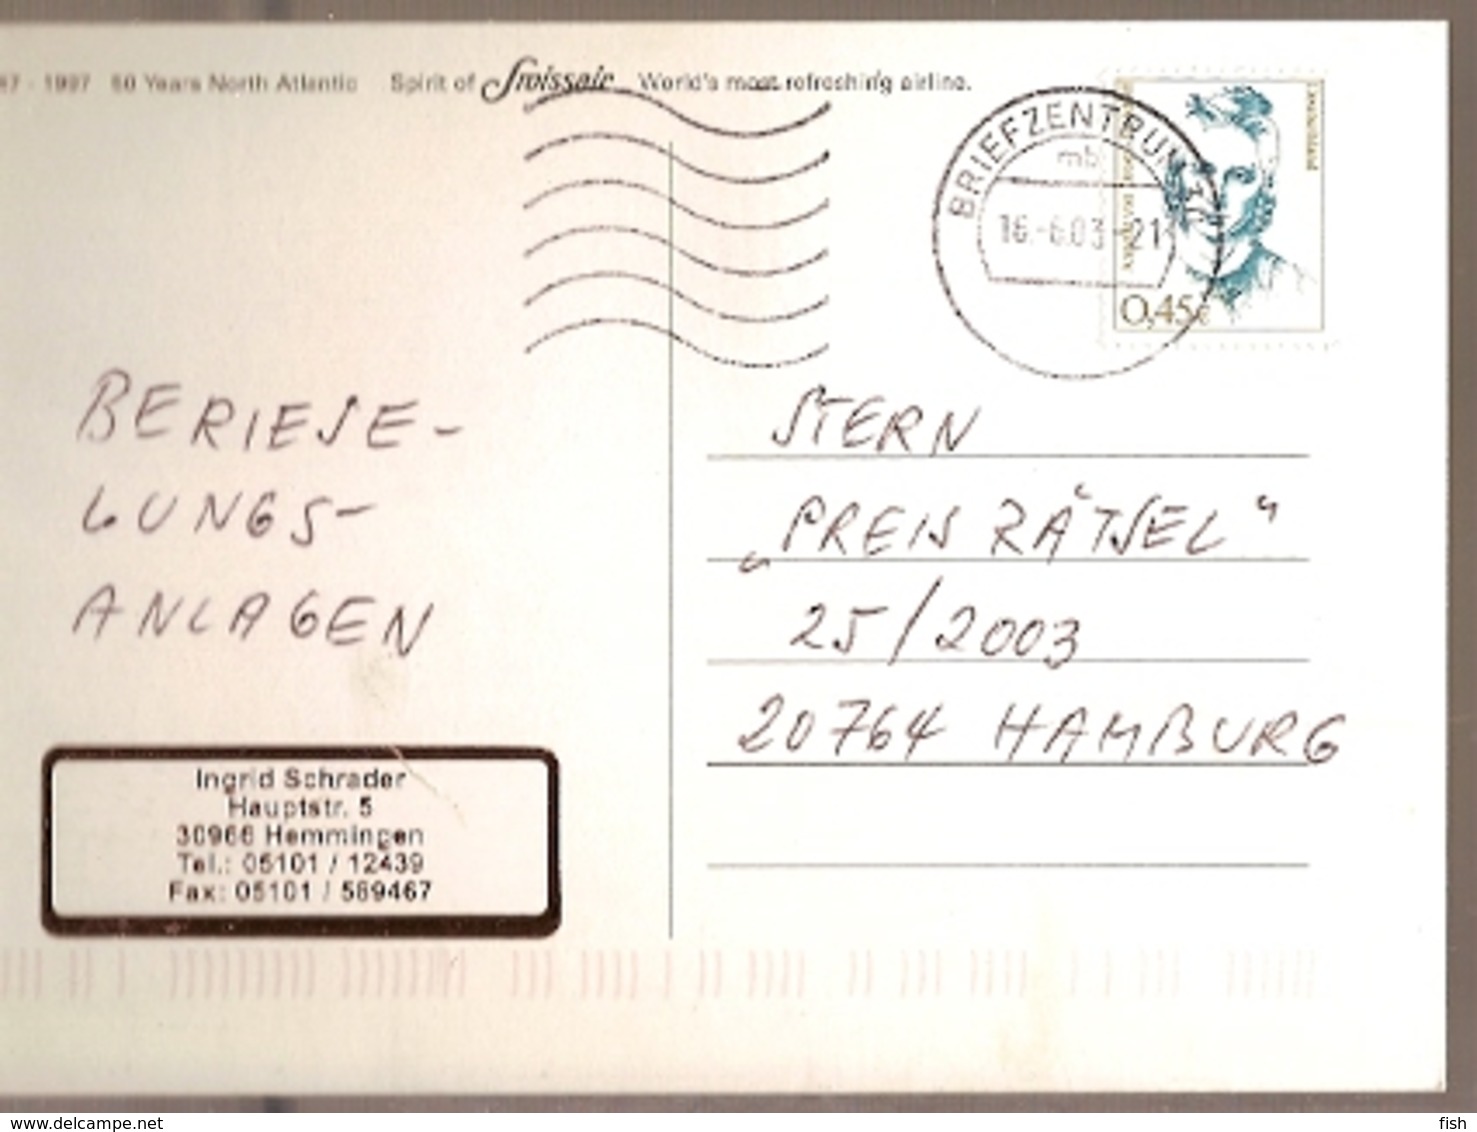 1997 50 Years North Atlantic Spirit of Swissair World's most refreshing airline.
BRIEFZENTRUM
mb
16.-6.03-21
Deutschland
0,45€
BERIESE-
LUNGS-
ANLAGEN
STERN
„PREIS RÄTSEL"
25/2003
20764 HAMBURG
Ingrid Schrader
Hauptstr. 5
30966 Hemmingen
Tel.: 05101 / 12439
Fax: 05101 / 589467
www.delcampe.net
fish